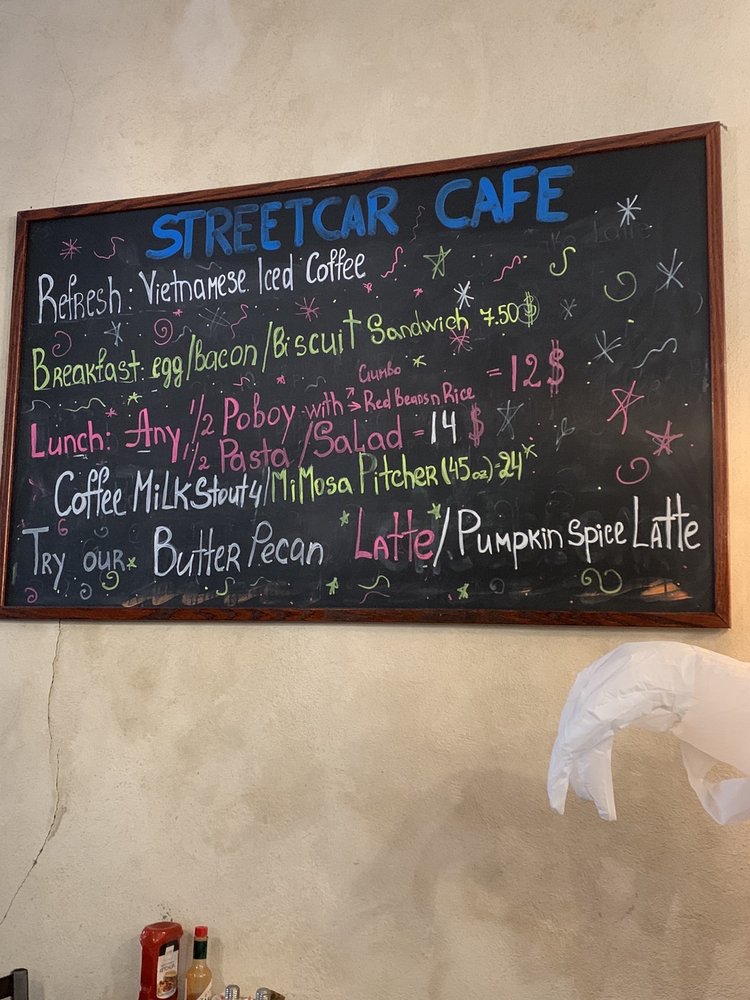 STREETCAR CAFE
Refresh: Vietnamese Iced Coffee
Breakfast: egg/bacon/Biscuit Sandwich 7.50$
Gumbo
Lunch: Any 1/2 Poboy with → Red Beans n Rice = 12$
1/2 Pasta/Salad = 14$
Coffee Milk Stout 4/MiMosa Pitcher (45oz)-24
Try our Butter Pecan Latte/Pumpkin Spice Latte